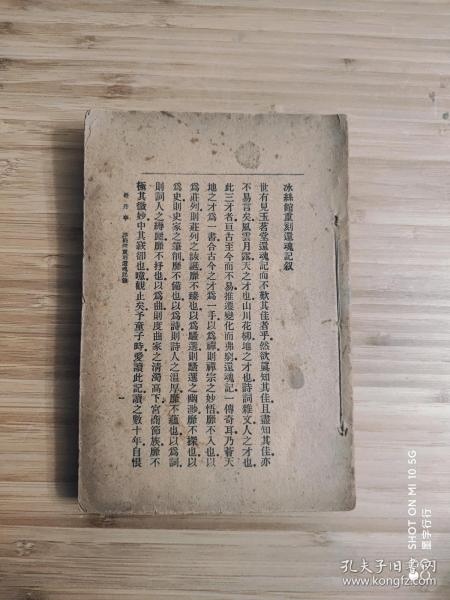 冰絲館重刻還魂記敘
世有見玉茗堂還魂記而不歎其佳者乎然欲眞知其佳且盡知其佳亦
不易言矣風雲月露天之才也山川花柳地之才也詩詞雜文人之才也
此三才者亘古至今而不易推遷變化而弗窮還魂記一傳奇耳乃薈天
地之才爲一書合古今之才爲一手以爲禪則禪宗之妙悟靡不入也以
爲莊列則莊列之詼諧靡不臻也以爲騷選則騷選之幽渺靡不探也以
爲史則史家之筆削靡不備也以爲詩則詩人之溫厚靡不蘊也以爲詞
則詞人之靡不抒也以爲曲則度曲家之清濁高下宮商節族靡不
極其微妙中其窾卻也噫觀止矣予童子時愛讀此記讀之數十年自恨
牡丹亭 冰絲館重刻還魂記敘
一
SHOT ON MI 10 5G
墨字行行
孔夫子旧书网
www.kongfz.com